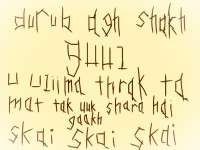 durub agh shakh
guuz
u uziima thrak ta
mat tak uuk shara hai
gaakh
skai skai skai